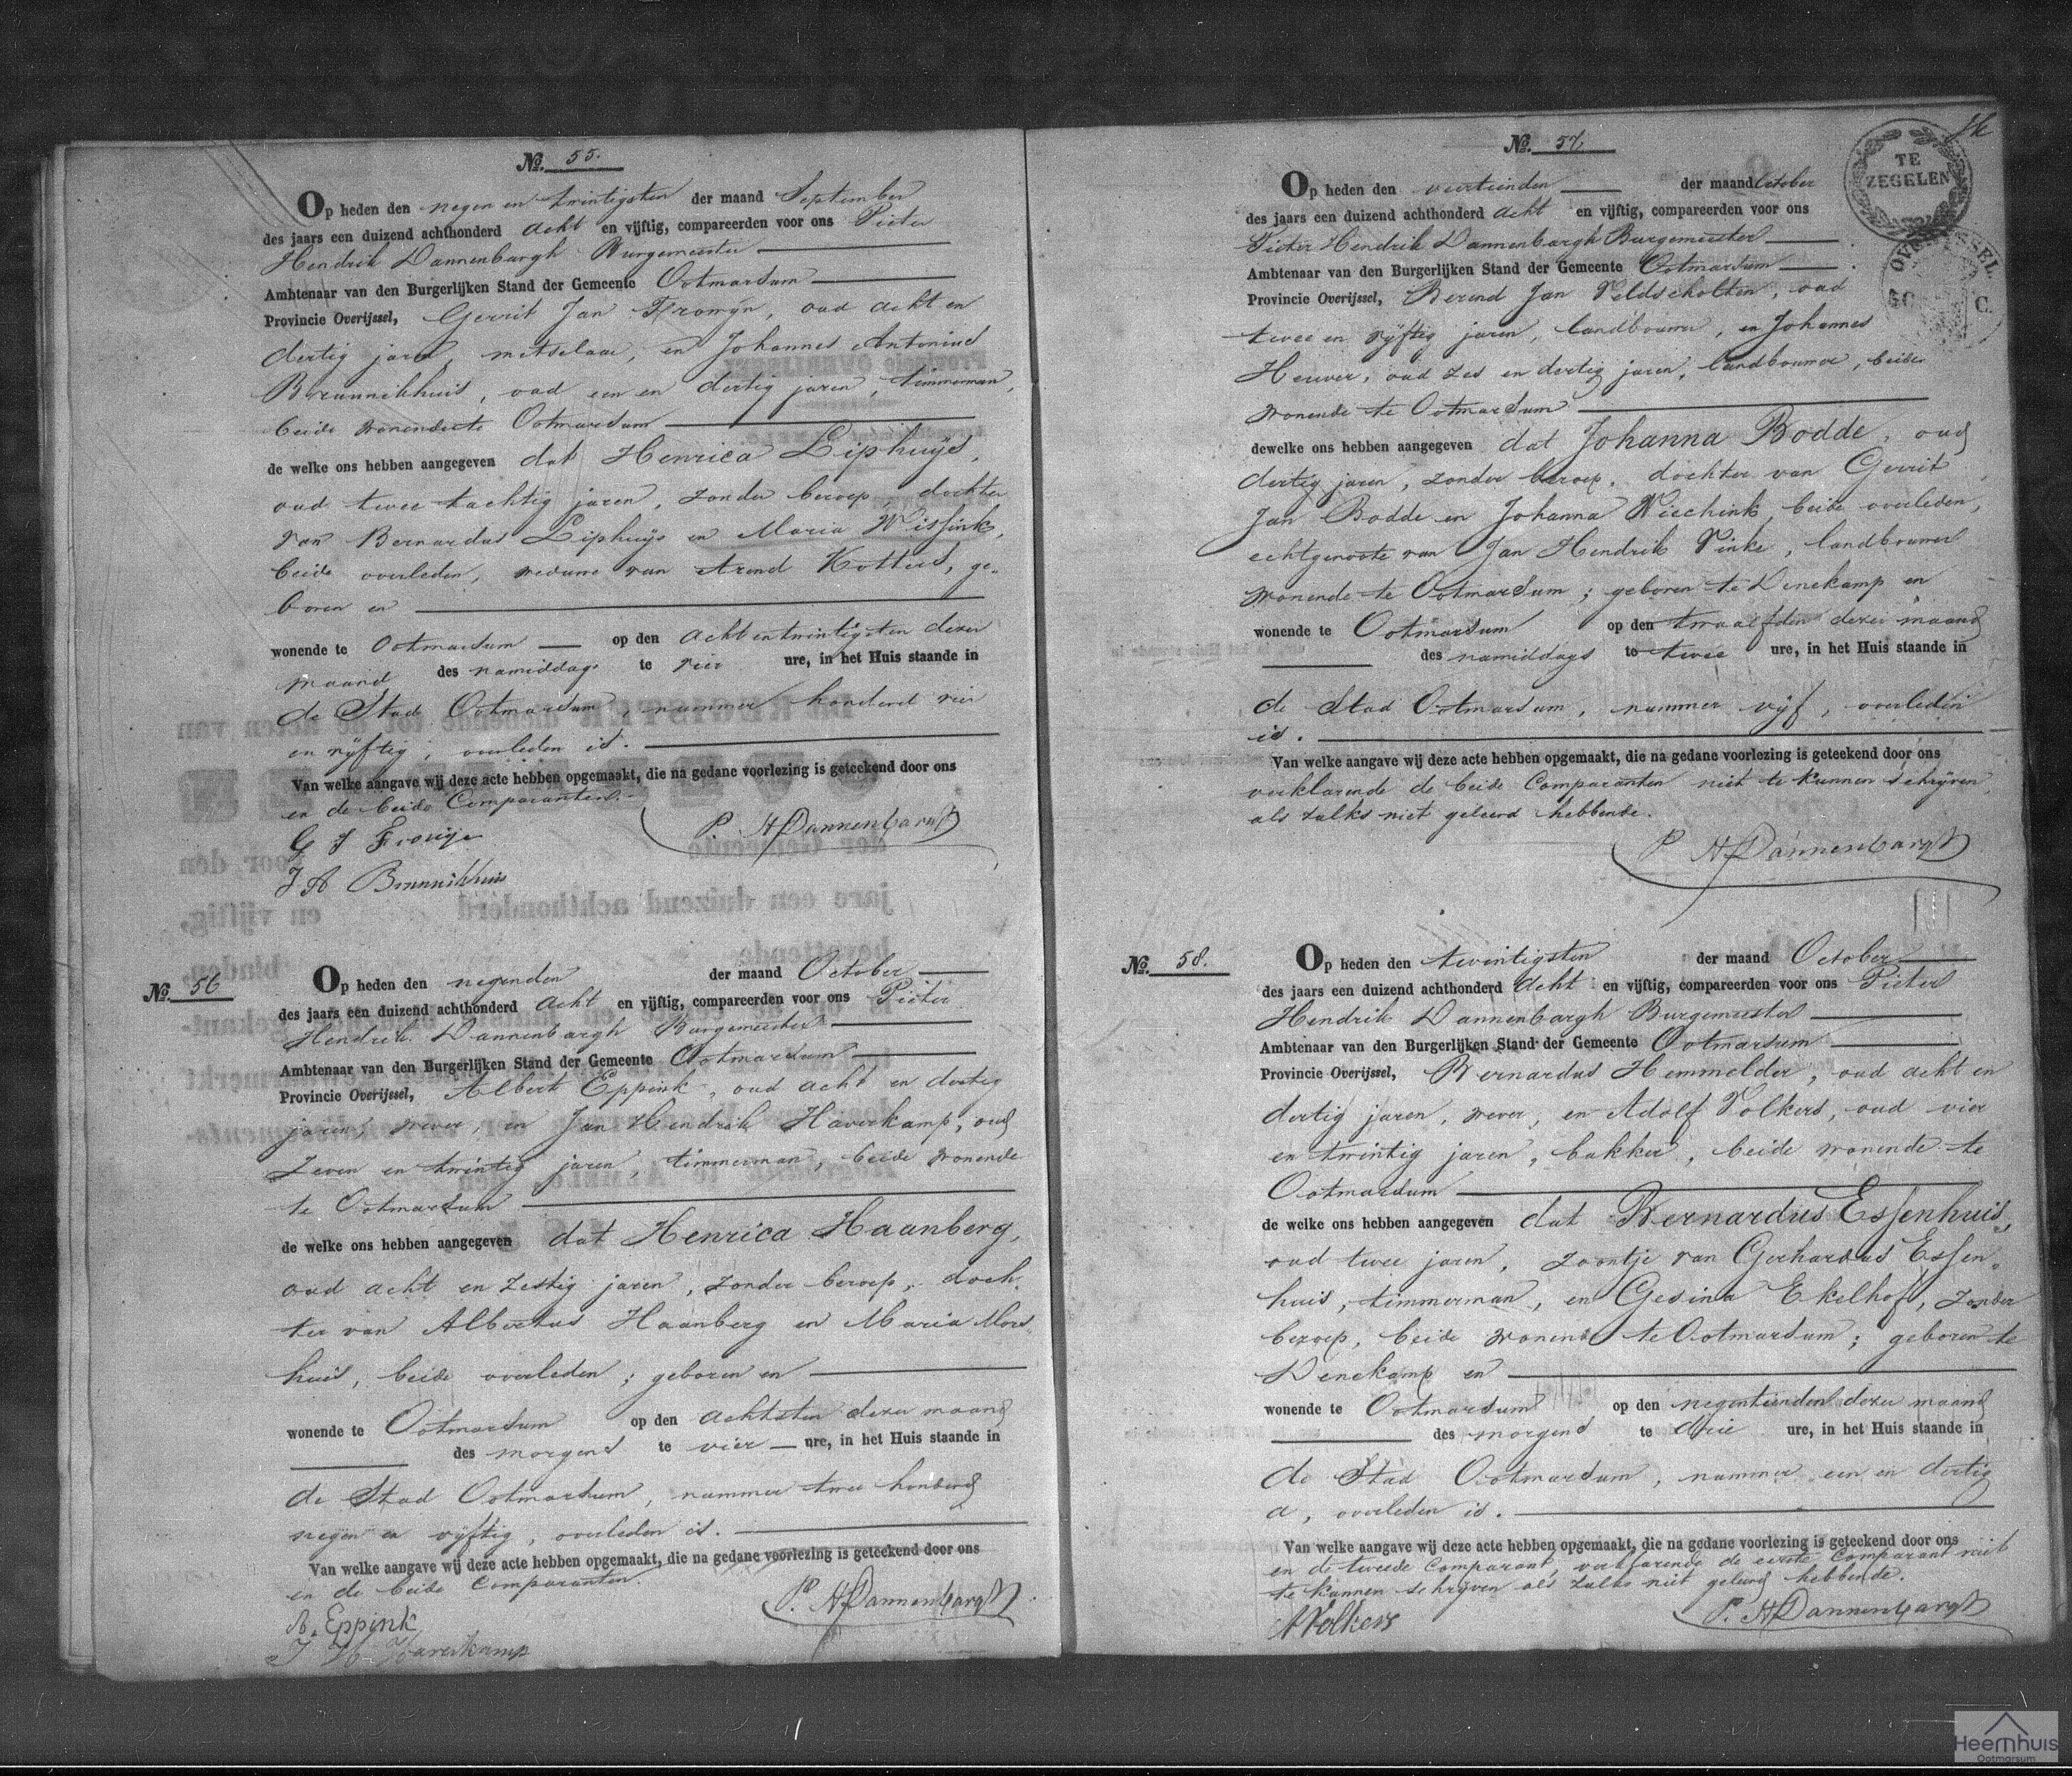 No. 55.
Op heden den negen en twintigsten der maand September
des jaars een duizend achthonderd acht en vijftig, compareerden voor ons Pieter
Hendrik Dannenbargh Burgemeester
Ambtenaar van den Burgerlijken Stand der Gemeente Ootmarsum
Provincie Overijssel, Gerrit Jan , oud acht en
dertig jaren, metselaar, en Johannes Antonius
Brunnikhuis, oud een en dertig jaren, timmerman,
beide wonende te Ootmarsum
de welke ons hebben aangegeven dat Henrica Liphuijs,
oud twee tachtig jaren, zonder beroep, dochter
van Bernardus Liphuijs en Maria Wissink,
beide overleden, weduwe van Arend Kotters, ge-
boren en
wonende te Ootmarsum op den acht en twintigsten dezer
maand des namiddags te vier ure, in het Huis staande in
de Stad Ootmarsum, nummer honderd vier
en vijftig, overleden is.
Van welke aangave wij deze acte hebben opgemaakt, die na gedane voorlezing is geteekend door ons
en de beide Comparanten.
G J
P. H Dannenbargh
J A Brunnikhuis
No. 56
Op heden den negenden der maand October
des jaars een duizend achthonderd acht en vijftig, compareerden voor ons Pieter
Hendrik Dannenbargh Burgemeester
Ambtenaar van den Burgerlijken Stand der Gemeente Ootmarsum
Provincie Overijssel, Albert Eppink, oud acht en dertig
jaren, wever, en Jan Hendrik Haverkamp, oud
zeven en twintig jaren, timmerman, beide wonende
te Ootmarsum
de welke ons hebben aangegeven dat Henrica Haanberg,
oud acht en zestig jaren, zonder beroep, doch-
ter van Albertus Haanberg en Maria Mors-
huis, beide overleden; geboren en
wonende te Ootmarsum op den achtsten dezer maand
des morgens te vier ure, in het Huis staande in
de Stad Ootmarsum, nummer twee honderd
negen en vijftig, overleden is.
Van welke aangave wij deze acte hebben opgemaakt, die na gedane voorlezing is geteekend door ons
en de beide Comparanten.
P. H Dannenbargh
A. Eppink
J H Haverkamp
No. 57
TE
ZEGELEN
OVERIJSSEL.
50 C.
Op heden den veertienden der maand October
des jaars een duizend achthonderd acht en vijftig, compareerden voor ons
Pieter Hendrik Dannenbargh Burgemeester
Ambtenaar van den Burgerlijken Stand der Gemeente Ootmarsum
Provincie Overijssel, Berend Jan Veldscholten, oud
twee en vijftig jaren, landbouwer, en Johannes
Heuver, oud zes en dertig jaren, landbouwer, beide
wonende te Ootmarsum
dewelke ons hebben aangegeven dat Johanna Bodde, oud
dertig jaren, zonder beroep, dochter van Gerrit
Jan Bodde en Johanna Wiechink, beide overleden,
echtgenoote van Jan Hendrik Vinke, landbouwer
wonende te Ootmarsum; geboren te Denekamp en
wonende te Ootmarsum op den twaalfden dezer maand
des namiddags te twee ure, in het Huis staande in
de Stad Ootmarsum, nummer vijf, overleden
is.
Van welke aangave wij deze acte hebben opgemaakt, die na gedane voorlezing is geteekend door ons
verklarende de beide Comparanten niet te kunnen schrijven,
als zulks niet geleerd hebbende.
P. H Dannenbargh
No. 58.
Op heden den twintigsten der maand October
des jaars een duizend achthonderd acht en vijftig, compareerden voor ons Pieter
Hendrik Dannenbargh Burgemeester
Ambtenaar van den Burgerlijken Stand der Gemeente Ootmarsum
Provincie Overijssel, Bernardus Hemmelder, oud acht en
dertig jaren, wever, en Adolf Volkers, oud vier
en twintig jaren, bakker, beide wonende te
Ootmarsum
de welke ons hebben aangegeven dat Bernardus Essenhuis,
oud twee jaren, zoontje van Gerhardus Essen-
huis, timmerman, en Gesina Ekelhof, zonder
beroep, beide wonende te Ootmarsum; geboren te
Denekamp en
wonende te Ootmarsum op den negentienden dezer maand
des morgens te drie ure, in het Huis staande in
de Stad Ootmarsum, nummer een en dertig
a, overleden is.
Van welke aangave wij deze acte hebben opgemaakt, die na gedane voorlezing is geteekend door ons
en de tweede Comparant, verklarende de eerste Comparant niet
te kunnen schrijven als zulks niet geleerd hebbende.
A Volkers
P. H Dannenbargh
Heemhuis
Ootmarsum